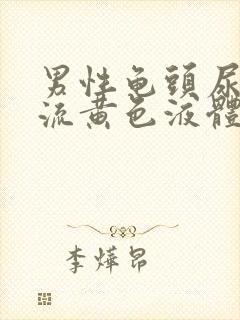 男性龟頭尿
流黄色液體
李燁昂